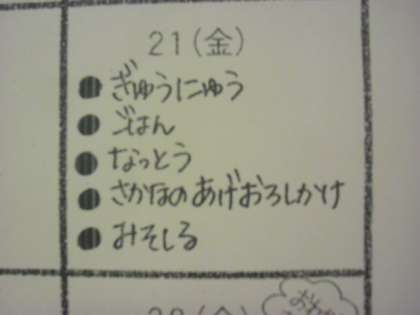 21(金)
●ぎゅうにゅう
●ごはん
●なっとう
●さかなのあげおろしかけ
●みそしる